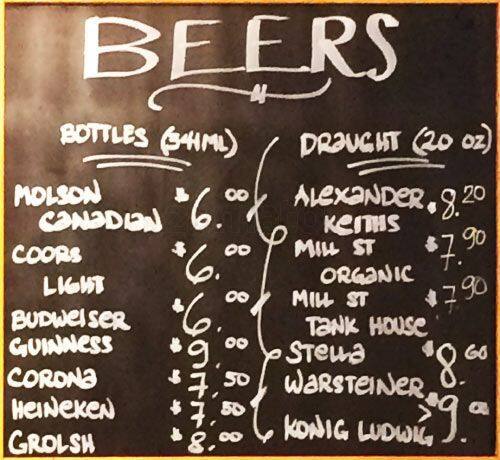 BEERS
BOTTLES (341ML)
MOLSON $6.00
CANADIAN
COORS $6.00
LIGHT
BUDWEISER $6.00
GUINNESS $9.00
CORONA $7.50
HEINEKEN $7.50
GROLSH $8.00
DRAUGHT (20 OZ)
ALEXANDER $8.20
KEITHS
MILL ST $7.90
ORGANIC
MILL ST $7.90
TANK HOUSE
STELLA $8.60
WARSTEINER
> $9.00
KONIG LUDWIG